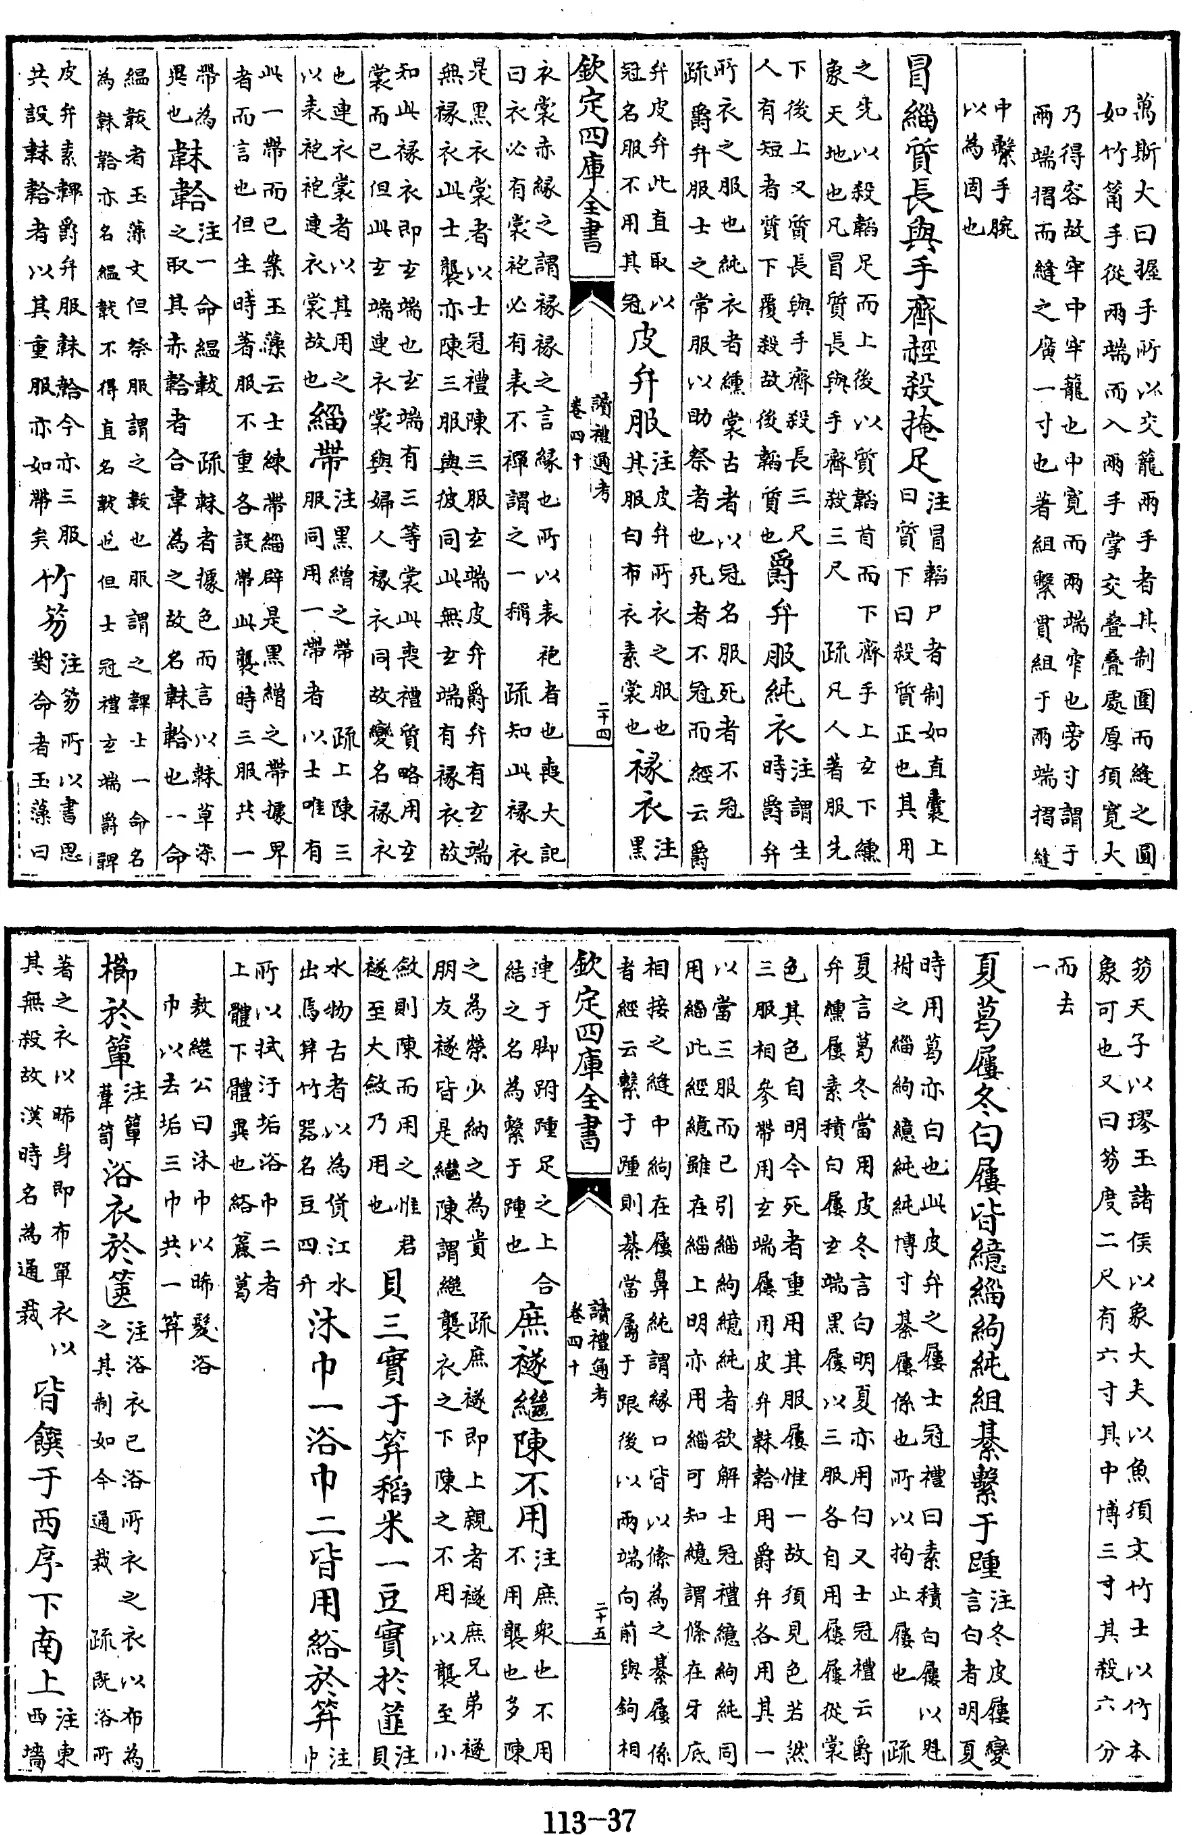 萬斯大曰握手所以交籠兩手者其制圍而縫之圓
如竹筩手從兩端而入兩手掌交疊疊處厚須寬大
乃得容故牢中牢籠也中寬而兩端窄也旁寸謂于
兩端摺而縫之廣一寸也著組繫貫組于兩端摺縫
中繫手腕
以為固也
冒緇質長與手齊䞓殺掩足
注冒韜尸者制如直囊上
曰質下曰殺質正也其用
之先以殺韜足而上後以質韜首而下齊手上玄下纁
象天地也凡冒質長與手齊殺三尺 疏凡人著服先
下後上又質長與手齊殺長三尺
人有短者質下覆殺故後韜質也
爵弁服純衣
注謂生
時爵弁
所衣之服也純衣者纁裳古者以冠名服死者不冠
疏爵弁服士之常服以助祭者也死者不冠而經云爵
弁皮弁此直取以
冠名服不用其冠
皮弁服
注皮弁所衣之服也
其服白布衣素裳也
褖衣
注
黑
欽定四庫全書
讀禮通考
卷四十
二十四
衣裳赤緣之謂褖褖之言緣也所以表袍者也喪大記
曰衣必有裳袍必有表不襌謂之一稱 疏知此褖衣
是黑衣裳者以士冠禮陳三服玄端皮弁爵弁有玄端
無褖衣此士襲亦陳三服與彼同此無玄端有褖衣故
知此褖衣即玄端也玄端有三等裳此喪禮質略用玄
裳而已但此玄端連衣裳與婦人褖衣同故變名褖衣
也連衣裳者以其用之
以表袍袍連衣裳故也
緇帶
注黑繒之帶 疏上陳三
服同用一帶者以士唯有
此一帶而已案玉藻云士練帶緇辟是黑繒之帶據畀
者而言也但生時著服不重各設帶此襲時三服共一
帶為
異也
韎韐
注一命縕韍 疏韎者據色而言以韎草染
之取其赤韐者合韋為之故名韎韐也一命
縕韍者玉藻文但祭服謂之韍他服謂之韠士一命名
為韎韐亦名縕韍不得直名韍也但士冠禮玄端爵韠
皮弁素韠爵弁服韎韐今亦三服
共設韎韐者以其重服亦如帶矣
竹笏
注笏所以書思
對命者玉藻曰
笏天子以璆玉諸侯以象大夫以魚須文竹士以竹本
象可也又曰笏度二尺有六寸其中博三寸其殺六分
而去
一
夏葛屨冬白屨皆繶緇絇純組綦繫于踵
注冬皮屨變
言白者明夏
時用葛亦白也此皮弁之屨士冠禮曰素積白屨以魁
柎之緇絇繶純純博寸綦屨係也所以拘止屨也 疏
夏言葛冬當用皮冬言白明夏亦用白又士冠禮云爵
弁纁屨素積白屨玄端黑屨以三服各自用屨屨從裳
色其色自明今死者重用其服屨惟一故須見色若然
三服相參帶用玄端屨用皮弁韎韐用爵弁各用其一
以當三服而已引緇絇繶純者欲解士冠禮繶絇純同
用緇此經繶雖在緇上明亦用緇可知繶謂條在牙底
相接之縫中絇在屨鼻純謂緣口皆以絛為之綦屨係
者經云繫于踵則綦當屬于跟後以兩端向前與絇相
欽定四庫全書
讀禮通考
卷四十
二十五
連于脚跗踵足之上合
結之名為繫于踵也
庶襚繼陳不用
注庶衆也不用
不用襲也多陳
之為榮少納之為貴 疏庶襚即上親者襚庶兄弟襚
朋友襚皆是繼陳謂繼襲衣之下陳之不用以襲至小
斂則陳而用之惟君
襚至大斂乃用也
貝三實于笲稻米一豆實於筐
注
貝
水物古者以為貨江水
出焉笲竹器名豆四升
沐巾一浴巾二皆用綌於笲
注
巾
所以拭汙垢浴巾二者
上體下體異也綌麤葛
敖繼公曰沐巾以晞髮浴
巾以去垢三巾共一笲
櫛於簞
注簞
葦笥
浴衣於篋
注浴衣已浴所衣之衣以布為
之其制如今通裁 疏既浴所
著之衣以晞身即布單衣以
其無殺故漢時名為通裁
皆饌于西序下南上
注東
西墻
113-37